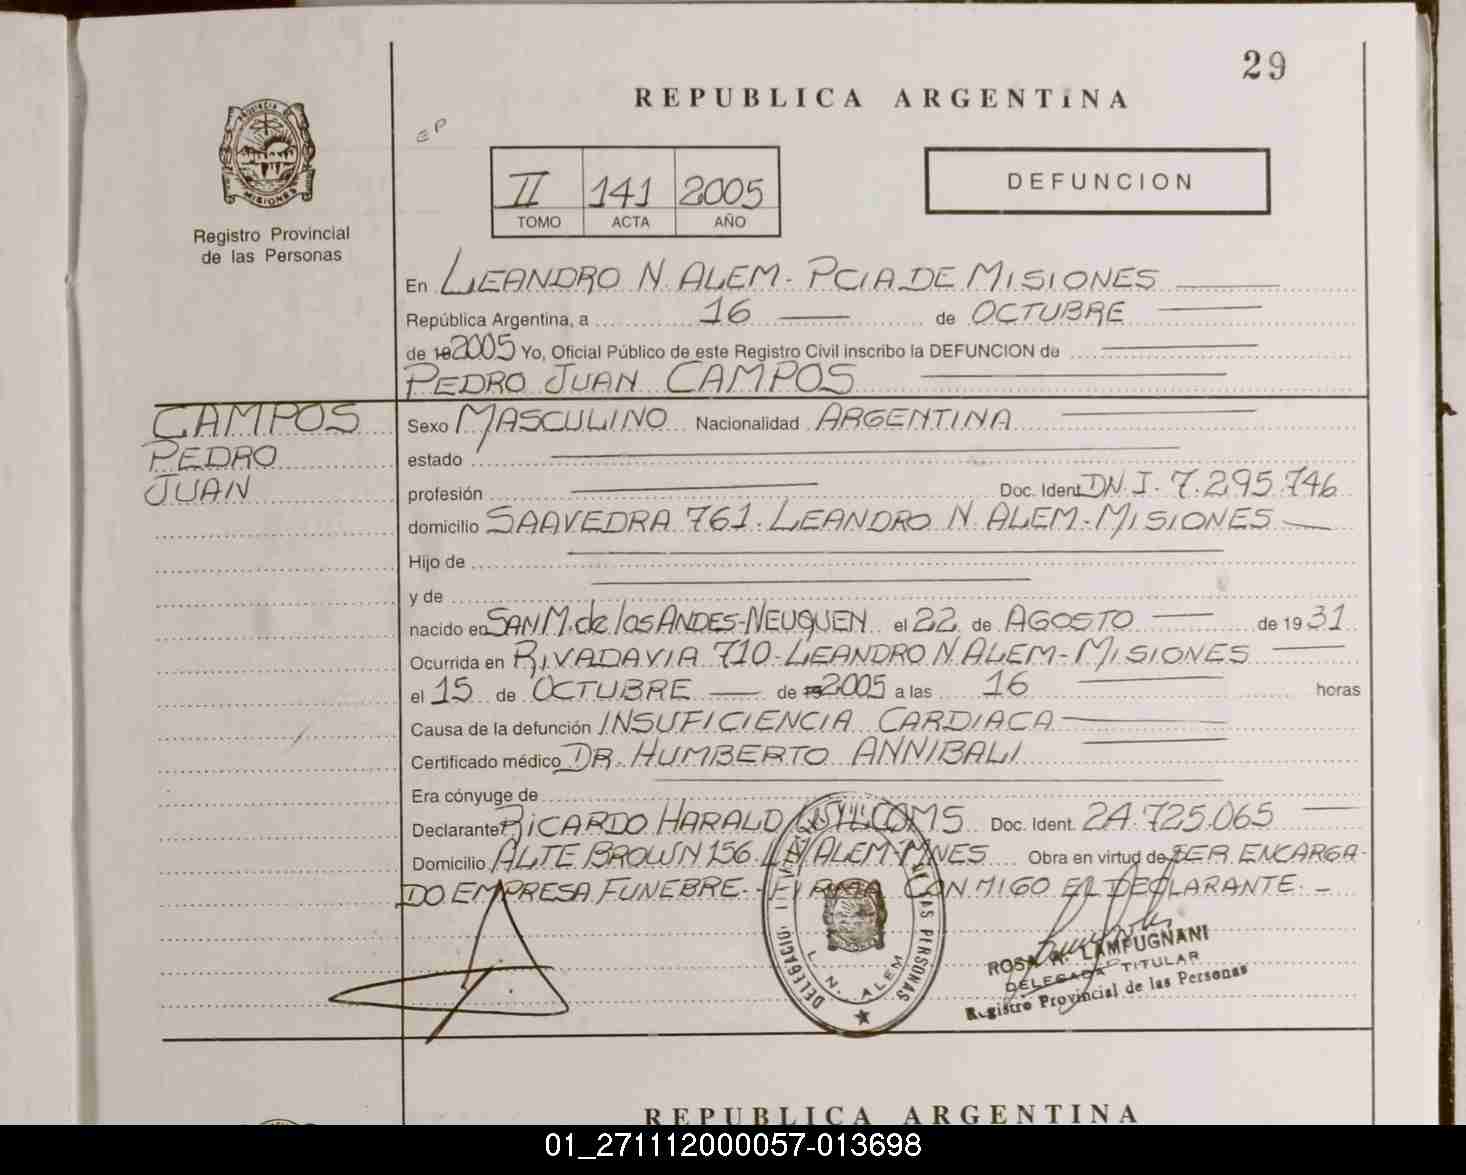 29
REPUBLICA ARGENTINA
EP
PROVINCIA DE MISIONES
II 141 2005
TOMO ACTA AÑO
DEFUNCION
Registro Provincial
de las Personas
En LEANDRO N. ALEM - PCIA DE MISIONES
República Argentina, a 16 de OCTUBRE
de 19 2005 Yo, Oficial Público de este Registro Civil inscribo la DEFUNCION de
PEDRO JUAN CAMPOS
CAMPOS
PEDRO
JUAN
Sexo MASCULINO Nacionalidad ARGENTINA
estado
profesión Doc. Ident. D.N.I. 7.295.746
domicilio SAAVEDRA 761. LEANDRO N. ALEM - MISIONES
Hijo de
y de
nacido en SAN M. de los ANDES - NEUQUEN el 22 de AGOSTO de 19 31
Ocurrida en RIVADAVIA 710 - LEANDRO N ALEM - MISIONES
el 15 de OCTUBRE de 19 2005 a las 16 horas
Causa de la defunción INSUFICIENCIA CARDIACA
Certificado médico DR. HUMBERTO ANNIBALI
Era cónyuge de
Declarante RICARDO HARALD Doc. Ident. 24.725.065
Domicilio ALTE BROWN 156. L N ALEM - MNES Obra en virtud de SER ENCARGA-
DO EMPRESA FUNEBRE. - FIRMA CONMIGO EL DECLARANTE. -
DELEGACION DE LAS PERSONAS
L. N. ALEM
ROSA A. LAMPUGNANI
DELEGADA TITULAR
Registro Provincial de las Personas
REPUBLICA ARGENTINA
01_271112000057-013698